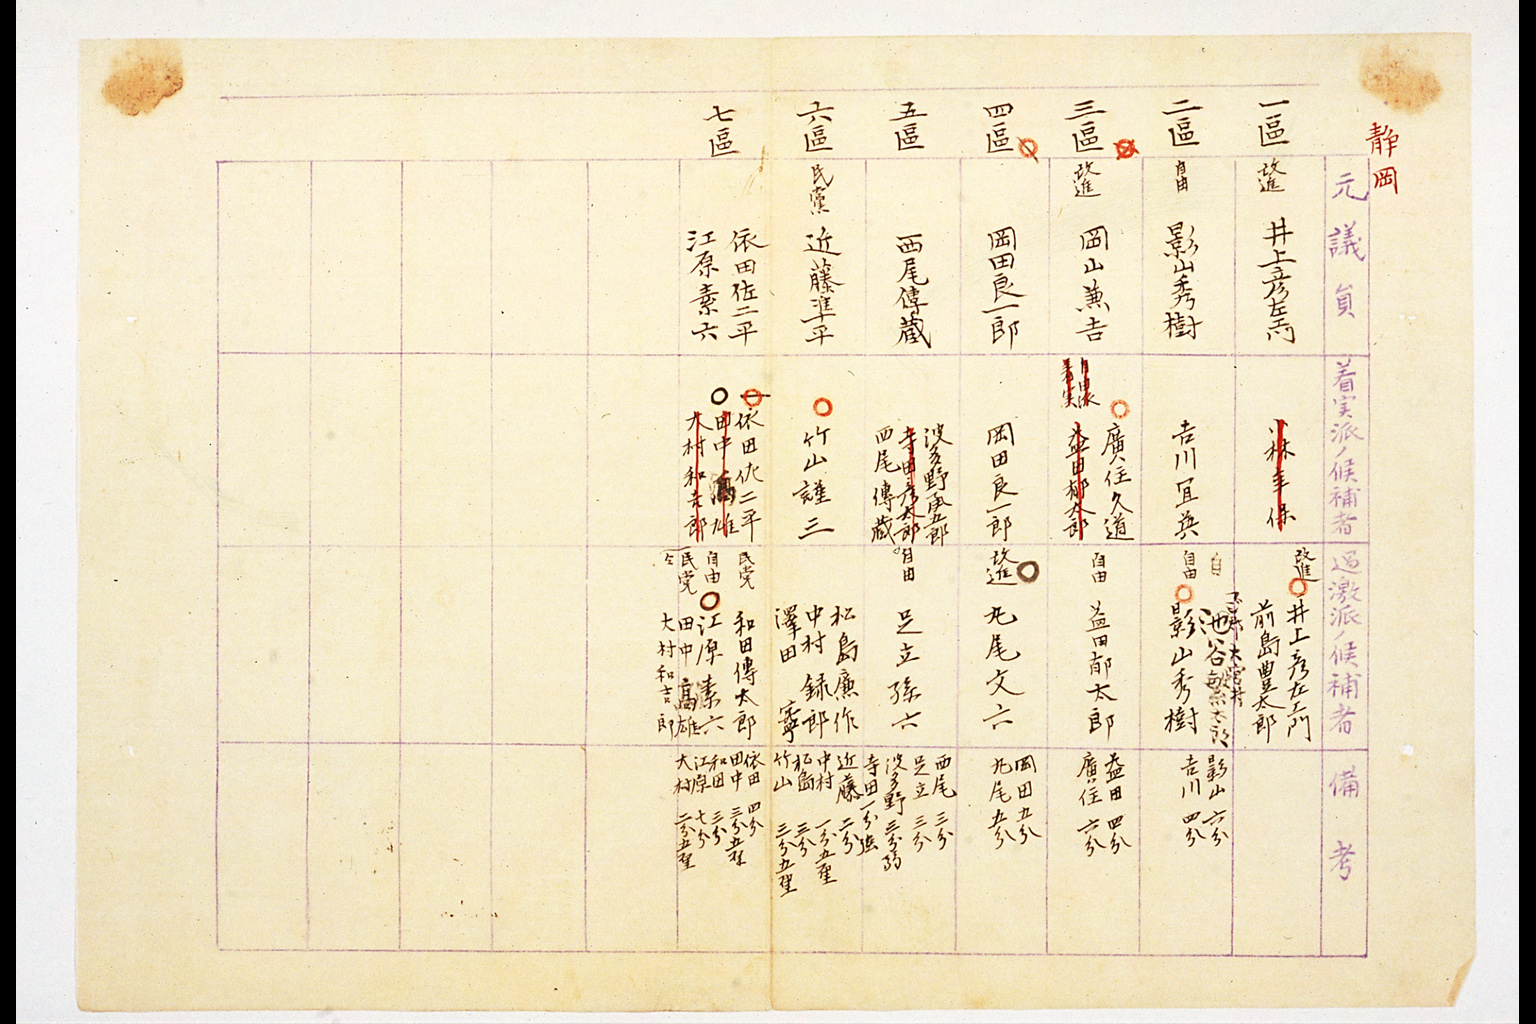 静岡
元議員
着実派ノ候補者
過激派ノ候補者
備考
一區
改進
井上彦左衛門
小林年保
改進
井上彦左衛門
前島豊太郎
二區
自由
影山秀樹
吉川宜兵
自由
自
影山秀樹
池谷繁太郎
影山 六分
吉川 四分
三區
改進
岡山兼吉
自由派
着実
廣住久道
益田郁太郎
自由
益田郁太郎
益田 四分
廣住 六分
四區
岡田良一郎
岡田良一郎
改進
丸尾文六
岡田 五分
丸尾 五分
五區
西尾傳蔵
波多野承五郎
寺田彦太郎
西尾傳蔵
自由
足立孫六
西尾 三分
足立 三分
波多野 三分弱
寺田 一分強
六區
民黨
近藤準平
竹山謹三
松島廉作
中村録郎
澤田寧
近藤 二分
中村 一分五厘
松島 三分
竹山 三分五厘
七區
依田佐二平
江原素六
依田佐二平
田中高雄
大村和吉郎
民党
和田傳太郎
自由
江原素六
民党
田中高雄
仝
大村和吉郎
依田 四分
田中 三分五厘
和田 三分
江原 七分
大村 二分五厘